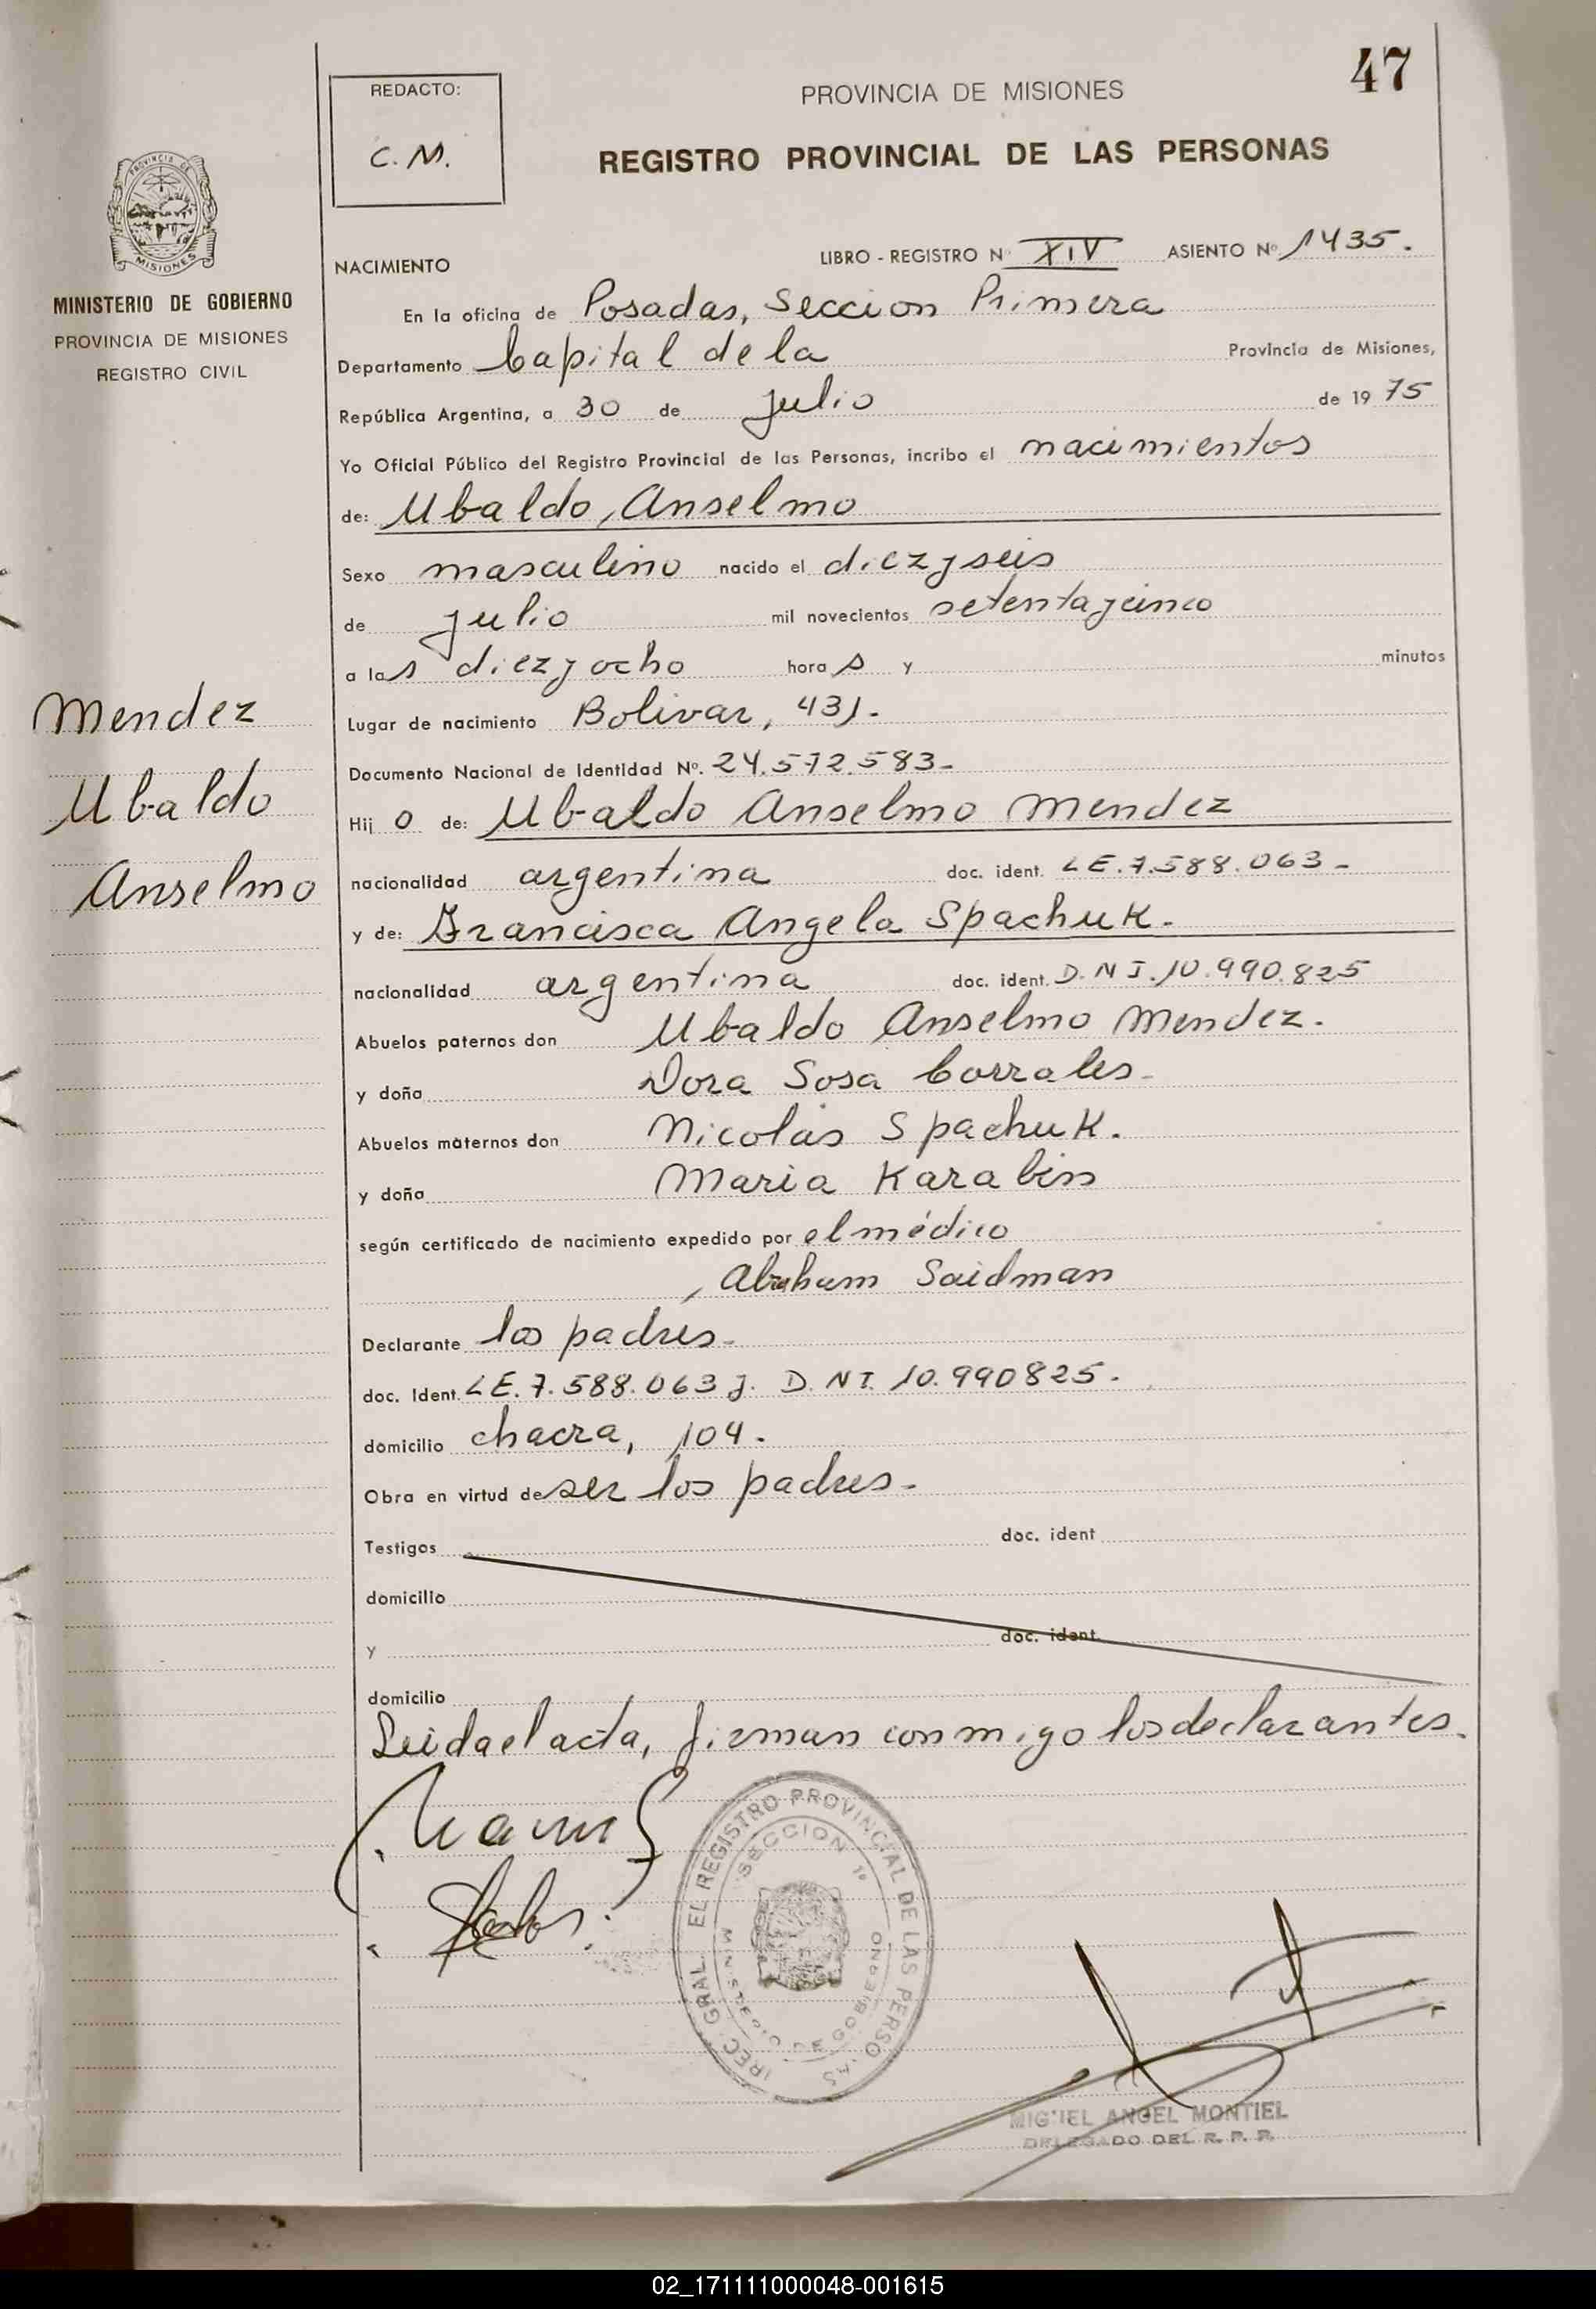 47
REDACTO:
C. M.
PROVINCIA DE MISIONES
REGISTRO PROVINCIAL DE LAS PERSONAS
PROVINCIA DE
MISIONES
MINISTERIO DE GOBIERNO
PROVINCIA DE MISIONES
REGISTRO CIVIL
NACIMIENTO LIBRO - REGISTRO Nº XIV ASIENTO Nº 1435.
En la oficina de Posadas, Seccion Primera
Departamento Capital de la Provincia de Misiones,
República Argentina, a 30 de julio de 19 75
Yo Oficial Público del Registro Provincial de las Personas, incribo el nacimientos
de: Ubaldo, Anselmo
Sexo masculino nacido el diez y seis
de julio mil novecientos setenta y cinco
a las diez y ocho horas y minutos
Mendez
Ubaldo
Anselmo
Lugar de nacimiento Bolivar, 431.
Documento Nacional de Identidad Nº. 24.572.583-
Hijo de: Ubaldo Anselmo Mendez
nacionalidad argentina doc. ident. LE.7.588.063-
y de: Francisca Angela Spachuk.
nacionalidad argentina doc. ident. D.N I.10.990.825
Abuelos paternos don Ubaldo Anselmo Mendez.
y doña Dora Sosa Corrales-
Abuelos maternos don Nicolás Spachuk.
y doña Maria Karabin
según certificado de nacimiento expedido por el médico
, Abraham Saidman
Declarante los padres-
doc. Ident. LE.7.588.063 y. D. NI. 10.990825.
domicilio chacra, 104.
Obra en virtud de ser los padres-
Testigos doc. ident
domicilio
y doc. ident.
domicilio
Leida el acta, firman conmigo los declarantes.
EL REGISTRO PROVINCIAL DE LAS PERSONAS
SECCION 1º
MINISTERIO DE GOBIERNO
MIGUEL ANGEL MONTIEL
DELEGADO DEL R. P. P.
02_171111000048-001615